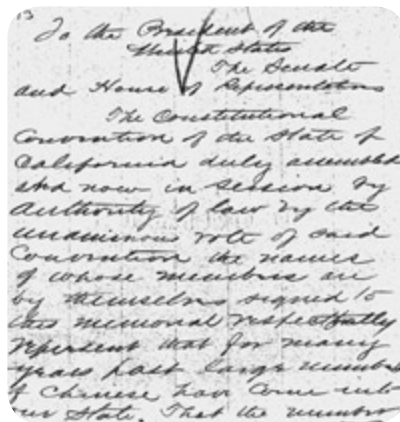 13
To the President of the
United States
The Senate
and House of Representatives
The Constitutional
Convention of the State of
California duly assembled
and now in session by
Authority of law by the
unanimous vote of said
Convention the names
of whose members are
by themselves signed to
this memorial respectfully
represent that for many
years past large numbers
of Chinese have come into
our State. That the numbers